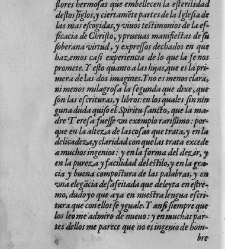 flores hermosas que embellecen la esterilidad
destos siglos, y ciertamẽte partes de la Iglesia de
las mas escogidas, y viuos testimonios de la ef-
ficacia de Christo, y prueuas manifiestas de su
soberana virtud, y expressos dechados en que
hazemos casi experiencia de lo que la fe nos
promete. Y esto quanto a las hijas, que es la pri-
mera de las dos imagines. Y no es menos clara,
ni menos milagrosa la segunda que dixe, que
son las escrituras, y libros: en los quales sin nin
guna duda quiso el Spiritu sancto, que la ma-
dre Teresa fuesse vn exemplo rarissimo: por-
que en la alteza de las cosas que trata, y en la
delicadeza, y claridad con que las trata excede
a muchos ingenios: y en la forma del dezir, y
en la pureza y facilidad del estilo, y en la gra-
cia y buena compostura de las palabras, y en
vna elegãcia desafeitada que deleyta en estre-
mo, dudo yo que aya en nuestra lengua escri-
tura que con ellos se yguale. Y ansi siempre que
los leo me admiro de nueuo: y en muchas par-
tes dellos me parece que no es ingenio de hom-
bre